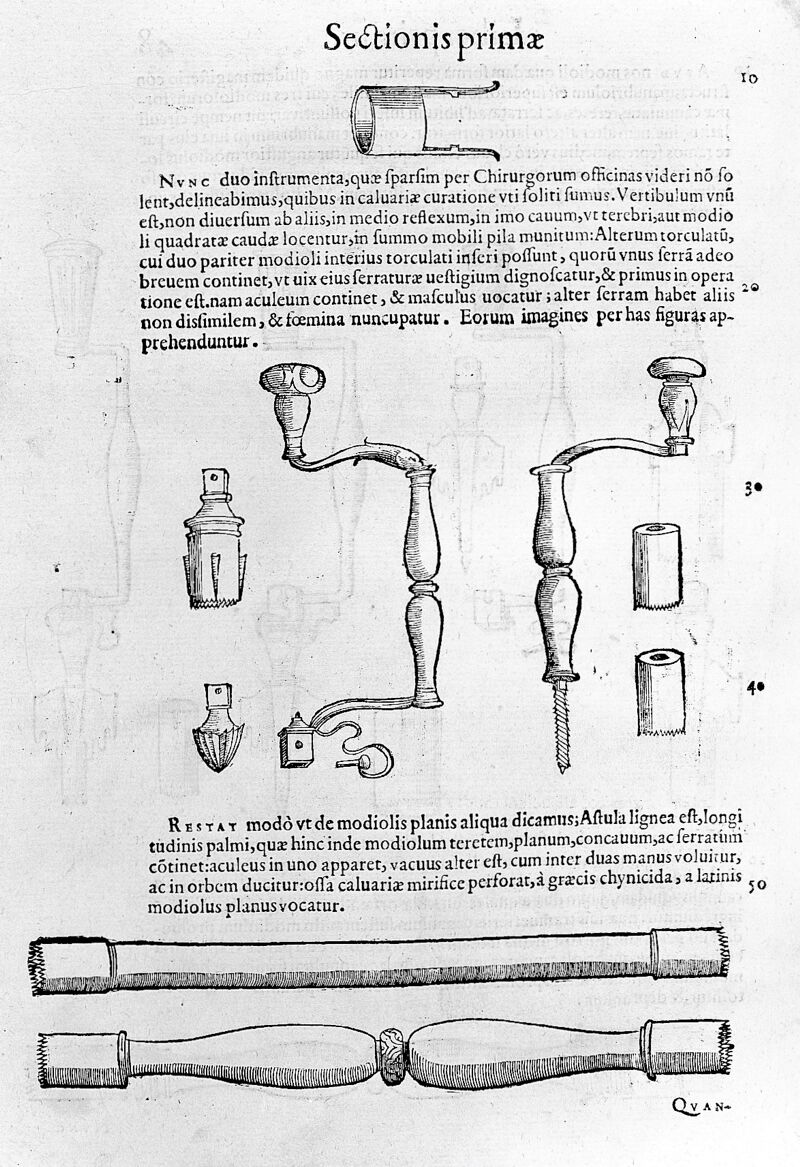 Sectionis primæ
10
NVNC duo inſtrumenta,quæ ſparſim per Chirurgorum officinas videri nõ ſo
lent,delineabimus,quibus in caluariæ curatione vti ſoliti ſumus.Vertibulum vnũ
eſt,non diuerſum ab aliis,in medio reflexum,in imo cauum,vt terebri,aut modio
li quadratæ caudæ locentur,in ſummo mobili pila munitum:Alterum torculatũ,
cui duo pariter modioli interius torculati inſeri poſſunt, quorũ vnus ſerrã adeo
breuem continet,vt uix eius ſerraturæ ueſtigium dignoſcatur,& primus in opera
20
tione eſt.nam aculeum continet, & maſculus uocatur; alter ſerram habet aliis
non diſſimilem, & fœmina nuncupatur. Eorum imagines per has figuras ap-
prehenduntur.
30
40
RESTAT modò vt de modiolis planis aliqua dicamus;Aſtula lignea eſt,longi
tudinis palmi,quæ hinc inde modiolum teretem,planum,concauum,ac ſerratum
cõtinet:aculeus in uno apparet, vacuus alter eſt, cum inter duas manus voluitur,
ac in orbem ducitur:oſſa caluariæ mirifice perforat,à græcis chynicida, a latinis
50
modiolus planus vocatur.
QVAN-